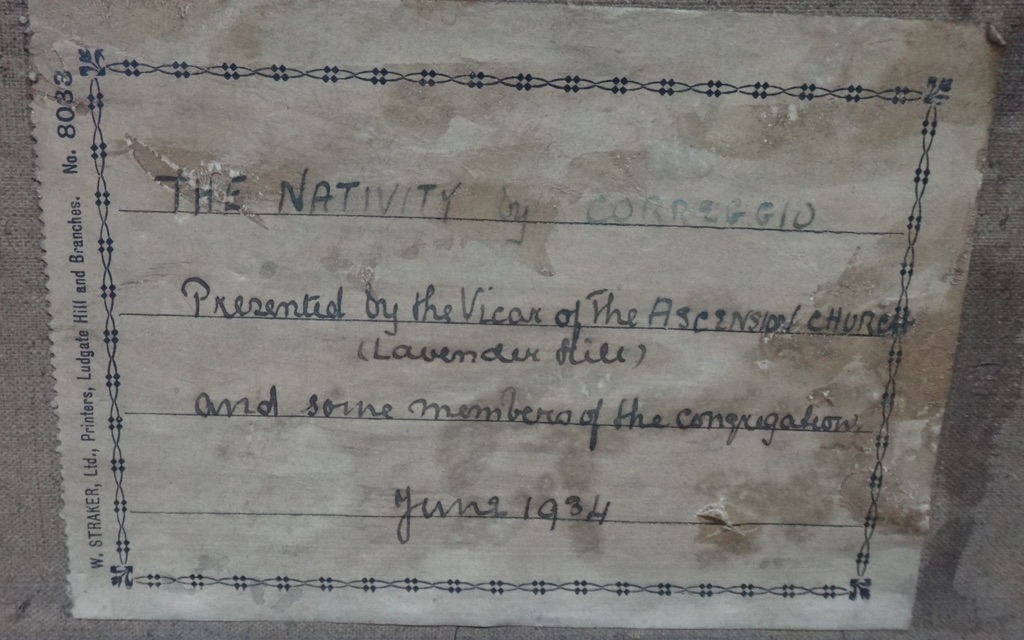 THE NATIVITY by CORREGGIO
Presented by the Vicar of The ASCENSION CHURCH
(Lavender Hill)
and some members of the congregation.
June 1934
W. STRAKER, Ltd., Printers, Ludgate Hill and Branches. No. 8033